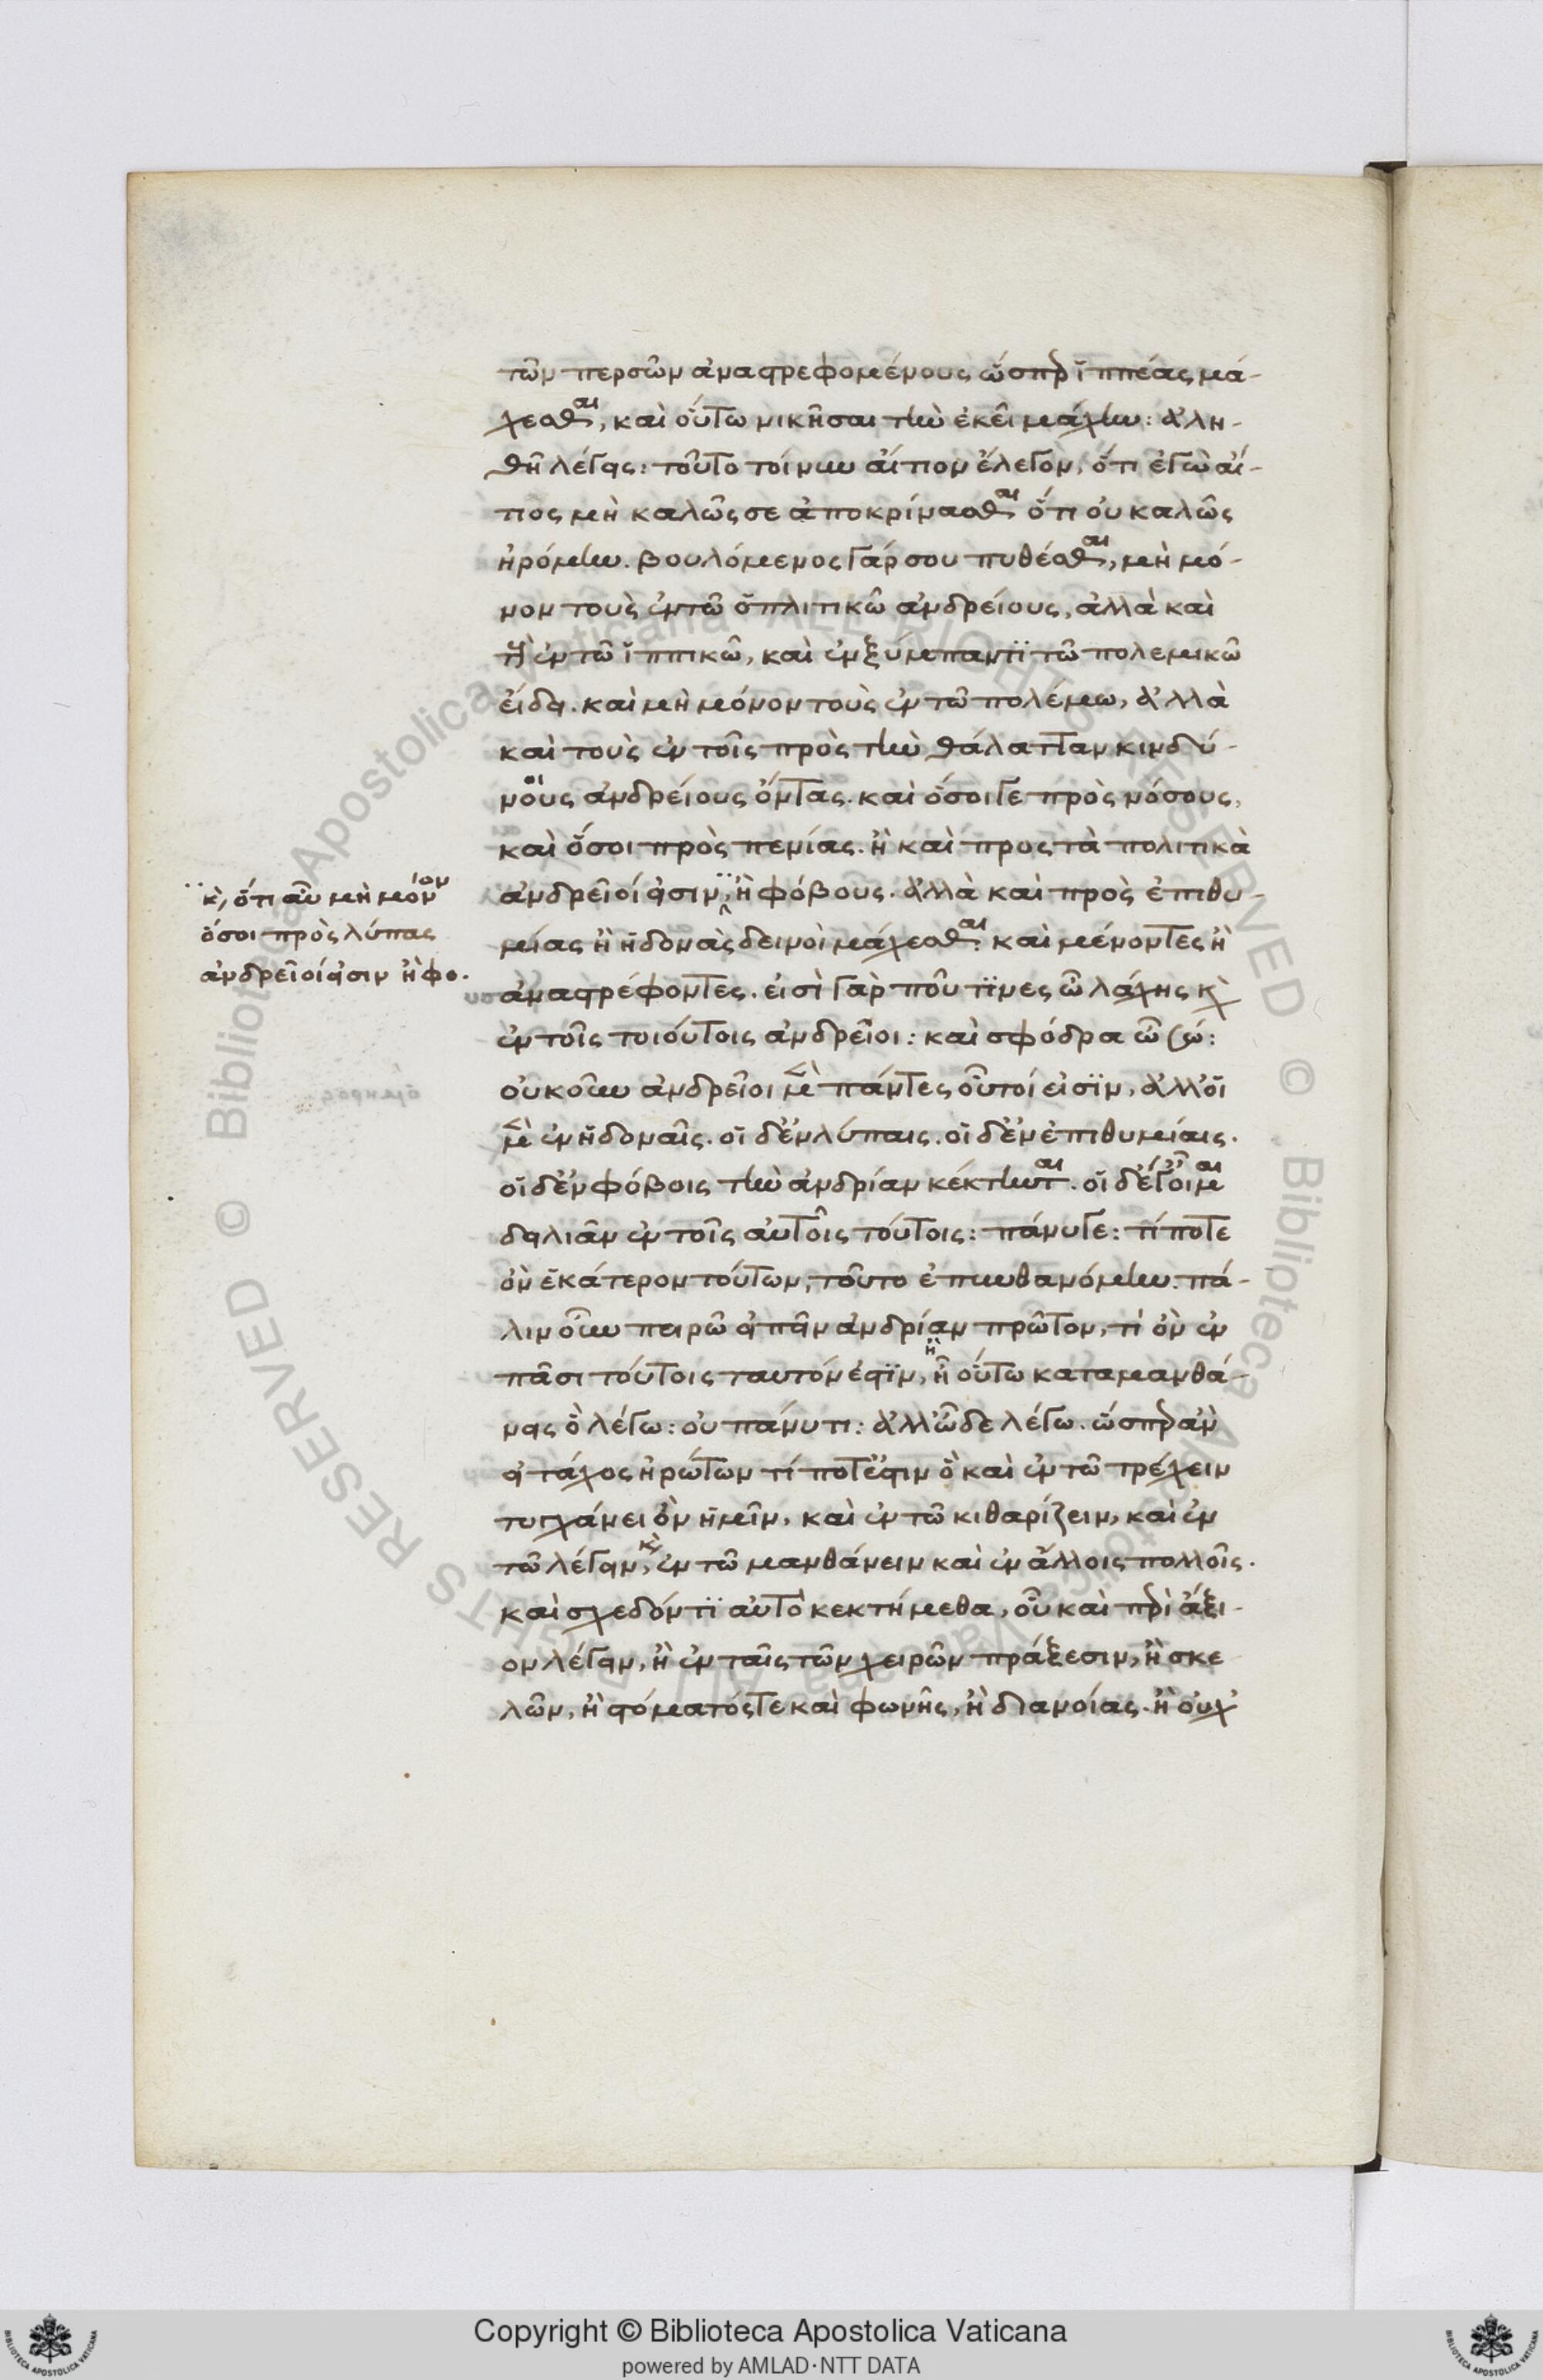 τῶν περσῶν ἀναστρεφομένους ὥσπερ ἱππέας μά-
χεσθαι, καὶ οὕτω νικῆσαι τὴν ἐκεῖ μάχην: ἀλη-
θῆ λέγεις: τοῦτο τοίνυν αἴτιον ἔλεγον, ὅτι ἐγὼ αἴ-
τιος μὴ καλῶς σε ἀποκρίνασθαι ὅτι οὐ καλῶς
ἠρόμην. βουλόμενος γάρ σου πυθέσθαι, μὴ μό-
νον τοὺς ἐν τῷ ὁπλιτικῷ ἀνδρείους, ἀλλὰ καὶ
τοὺς ἐν τῷ ἱππικῷ, καὶ ἐν ξύμπαντι τῷ πολεμικῷ
εἴδει. καὶ μὴ μόνον τοὺς ἐν τῷ πολέμω, ἀλλὰ
καὶ τοὺς ἐν τοῖς πρὸς τὴν θάλατταν κινδύ-
νοις ἀνδρείους ὄντας. καὶ ὅσοι γε πρὸς νόσους,
καὶ ὅσοι πρὸς πενίας. ἢ καὶ προς τὰ πολιτικὰ
ἀνδρεῖοί εἰσιν, ἢ φόβους. ἀλλὰ καὶ πρὸς ἐπιθυ-
μίας ἢ ἡδονὰς δεινοὶ μάχεσθαι. καὶ μένοντες ἢ
ἀναστρέφοντες. εἰσὶ γὰρ που τινες ὦ λάχης καὶ
ἐν τοῖς τοιούτοις ἀνδρεῖοι: καὶ σφόδρα ὦ σώ:
οὐκοῦν ἀνδρεῖοι μὲν πάντες οὗτοί εἰσιν, ἀλλ' οἱ
μὲν ἐν ἡδοναῖς. οἱ δ' ἐν λύπαις. οἱ δ' ἐν ἐπιθυμίαις.
οἱ δ' ἐν φόβοις τὴν ἀνδρίαν κέκτηνται. οἱ δέ γ' οἶμαι
δειλίαν ἐν τοῖς αὐτοῖς τούτοις: πάνυ γε: τί ποτε
ὂν ἑκάτερον τούτων, τοῦτο ἐπυνθανόμην. πά-
λιν οὖν πειρῶ εἰπεῖν ἀνδρίαν πρῶτον, τί ὂν ἐν
πᾶσι τούτοις ταυτόν ἐστιν, ἢ οὔτω καταμανθά-
νεις ὃ λέγω: οὐ πάνυ τι: ἀλλ' ὧδε λέγω. ὥσπερ ἂν
εἰ τάχος ἠρώτων τί ποτ' ἐστιν ὃ καὶ ἐν τῷ τρέχειν
τυγχάνει ὂν ἡμῖν, καὶ ἐν τῷ κιθαρίζειν, καὶ ἐν
τῷ λέγειν, καὶ ἐν τῷ μανθάνειν καὶ ἐν ἄλλοις πολλοῖς.
καὶ σχεδόν τι αὐτὸ κεκτήμεθα, οὗ καὶ περὶ ἄξι-
ον λέγειν, ἢ ἐν ταῖς τῶν χειρῶν πράξεσιν, ἢ σκε
λῶν, ἢ στόματός τε καὶ φωνῆς, ἢ διανοίας. ἢ οὐχ
καὶ ὅτι αὖ μὴ μόνον
ὅσοι πρὸς λύπας
ἀνδρεῖοί εἰσιν ἢ φο.
Copyright © Biblioteca Apostolica Vaticana
powered by AMLAD·NTT DATA
© Biblioteca Apostolica Vaticana ALL RIGHTS RESERVED
© Biblioteca Apostolica Vaticana ALL RIGHTS RESERVED